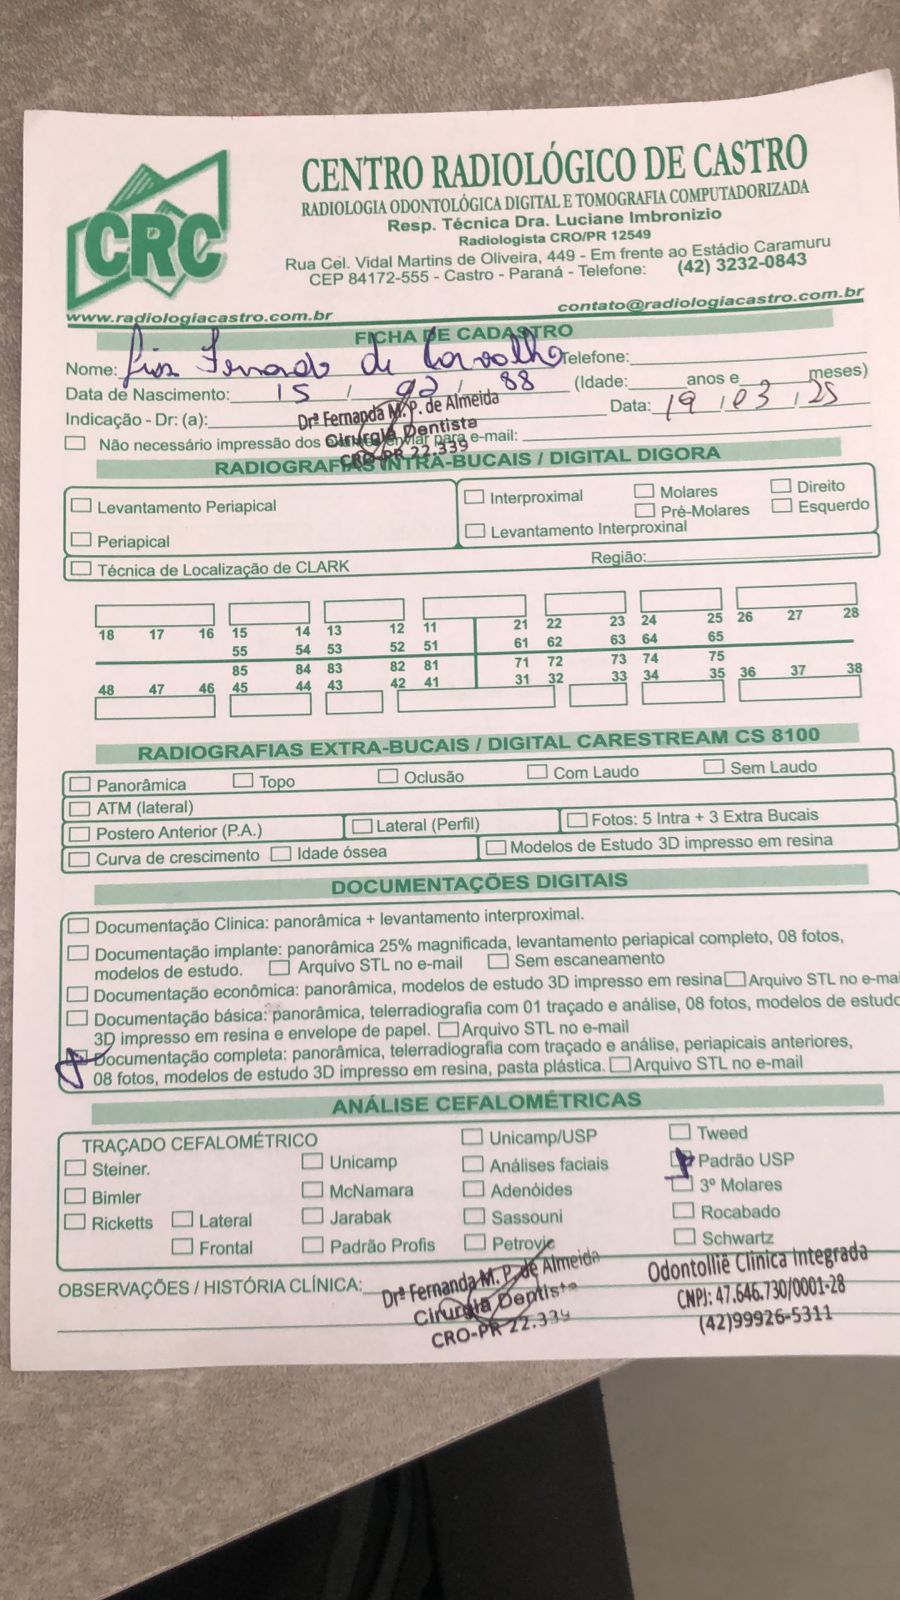 CRC
CENTRO RADIOLÓGICO DE CASTRO
RADIOLOGIA ODONTOLÓGICA DIGITAL E TOMOGRAFIA COMPUTADORIZADA
Resp. Técnica Dra. Luciane Imbronizio
Radiologista CRO/PR 12549
Rua Cel. Vidal Martins de Oliveira, 449 - Em frente ao Estádio Caramuru
CEP 84172-555 - Castro - Paraná - Telefone: (42) 3232-0843
www.radiologiacastro.com.br contato@radiologiacastro.com.br
FICHA DE CADASTRO
Nome: Fernando de Carvalho Telefone:
Data de Nascimento: 15 / 02 / 88 (Idade: anos e meses)
Indicação - Dr: (a): Drª Fernanda M. P. de Almeida Data: 19 / 03 / 25
Cirurgiã Dentista
CRO-PR 22.339
Não necessário impressão dos enviar para e-mail:
RADIOGRAFIAS INTRA-BUCAIS / DIGITAL DIGORA
Levantamento Periapical Interproximal Molares Direito
Pré-Molares Esquerdo
Periapical Levantamento Interproxinal
Técnica de Localização de CLARK Região:
18 17 16 15 14 13 12 11 21 22 23 24 25 26 27 28
55 54 53 52 51 61 62 63 64 65
85 84 83 82 81 71 72 73 74 75
48 47 46 45 44 43 42 41 31 32 33 34 35 36 37 38
RADIOGRAFIAS EXTRA-BUCAIS / DIGITAL CARESTREAM CS 8100
Panorâmica Topo Oclusão Com Laudo Sem Laudo
ATM (lateral)
Postero Anterior (P.A.) Lateral (Perfil) Fotos: 5 Intra + 3 Extra Bucais
Curva de crescimento Idade óssea Modelos de Estudo 3D impresso em resina
DOCUMENTAÇÕES DIGITAIS
Documentação Clinica: panorâmica + levantamento interproximal.
Documentação implante: panorâmica 25% magnificada, levantamento periapical completo, 08 fotos,
modelos de estudo. Arquivo STL no e-mail Sem escaneamento
Documentação econômica: panorâmica, modelos de estudo 3D impresso em resina Arquivo STL no e-mai
Documentação básica: panorâmica, telerradiografia com 01 traçado e análise, 08 fotos, modelos de estudo
3D impresso em resina e envelope de papel. Arquivo STL no e-mail
Documentação completa: panorâmica, telerradiografia com traçado e análise, periapicais anteriores,
08 fotos, modelos de estudo 3D impresso em resina, pasta plástica. Arquivo STL no e-mail
ANÁLISE CEFALOMÉTRICAS
TRAÇADO CEFALOMÉTRICO Unicamp/USP Tweed
Steiner. Unicamp Análises faciais Padrão USP
Bimler McNamara Adenóides 3º Molares
Ricketts Lateral Jarabak Sassouni Rocabado
Frontal Padrão Profis Petrovic Schwartz
OBSERVAÇÕES / HISTÓRIA CLÍNICA:
Drª Fernanda M. P. de Almeida
Cirurgiã Dentista
CRO-PR 22.339
Odontolliê Clinica Integrada
CNPJ: 47.646.730/0001-28
(42)99926-5311